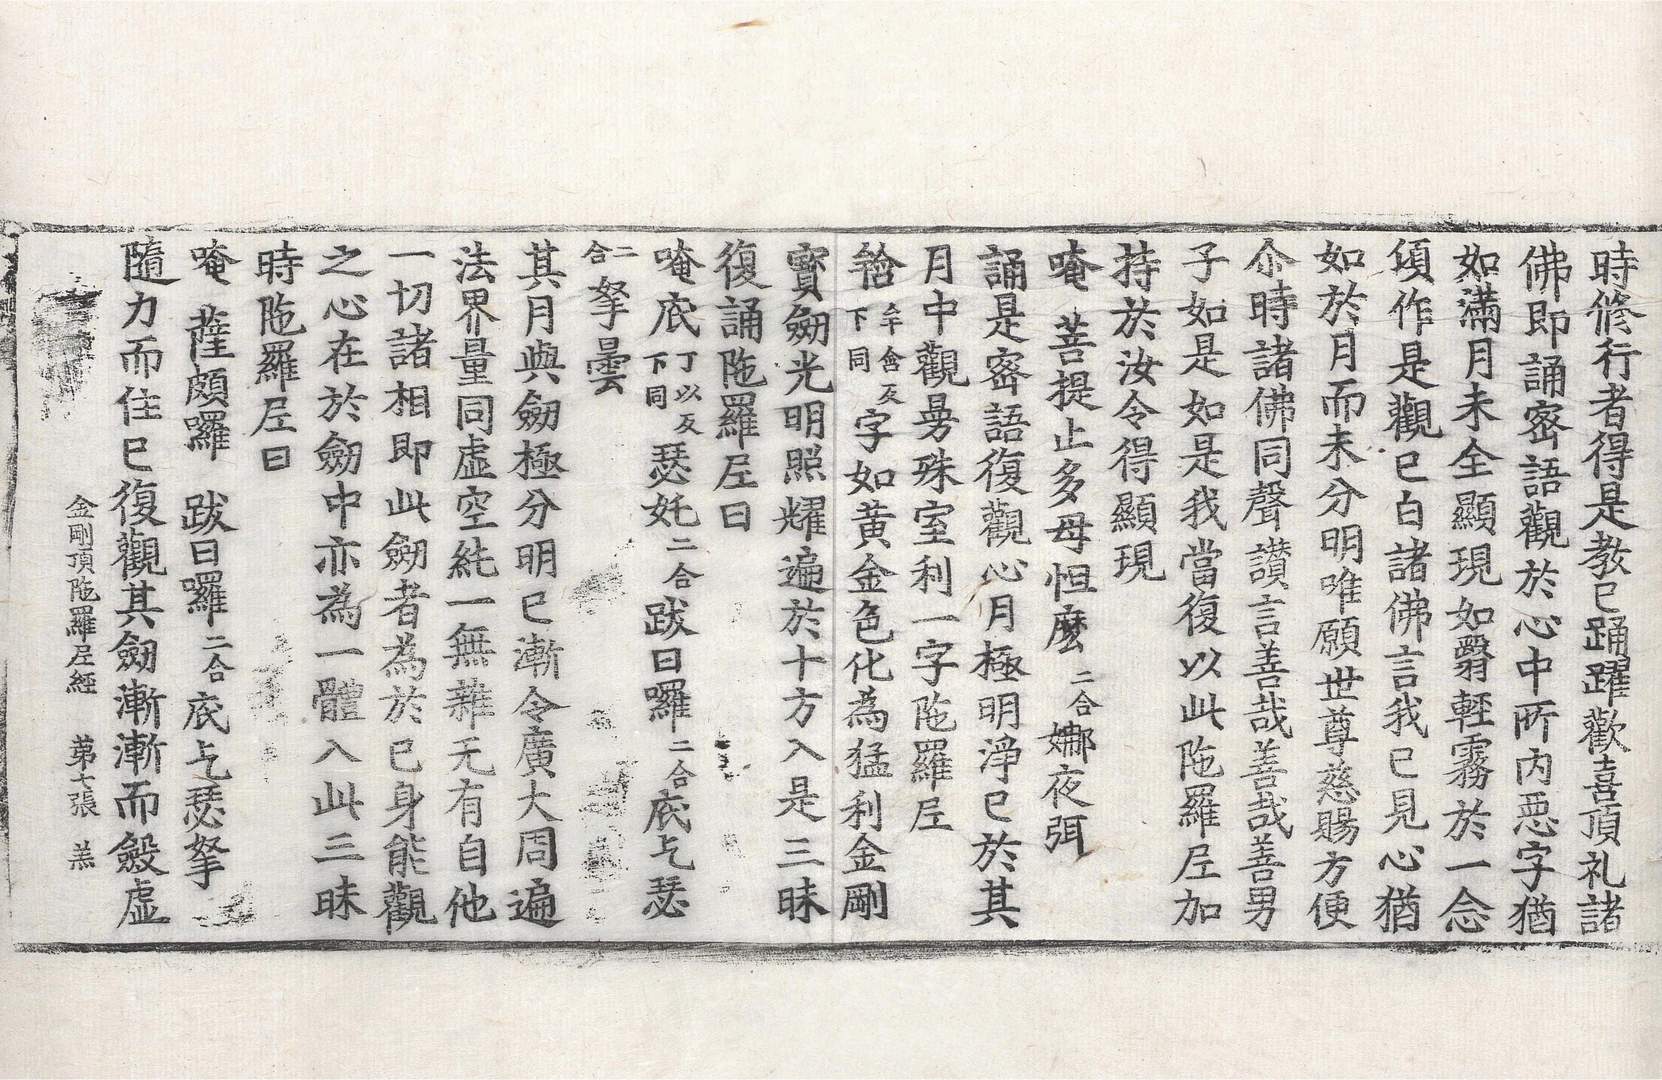 時修行者得是教已踊躍歡喜頂礼諸
佛即誦密語觀於心中所內惡字猶
如滿月未全顯現如翳輕霧於一念
頃作是觀已白諸佛言我已見心猶
如於月而未分明唯願世尊慈賜方便
尒時諸佛同聲讃言善哉善哉善男
子如是如是我當復以此陁羅尼加
持於汝令得顯現
唵 菩提止多母怛麽 二合 娜夜弭
誦是密語復觀心月極明淨已於其
月中觀曼殊室利一字陁羅尼
𤚥 牟含反下同 字如黃金色化為猛利金剛
寶劒光明照耀遍於十方入是三昧
復誦陁羅尼曰
唵底 丁以反下同 瑟奼 二合 跋曰囉 二合 底乞瑟
二合 拏曇
其月與劒極分明已漸令廣大周遍
法界量同虛空純一無雜无有自他
一切諸相即此劒者為於已身能觀
之心在於劒中亦為一體入此三昧
時陁羅尼曰
唵 薩頗囉 跋曰囉 二合 底乞瑟拏
隨力而住已復觀其劒漸漸而斂虛
金剛頂陁羅尼經 第七張 羔